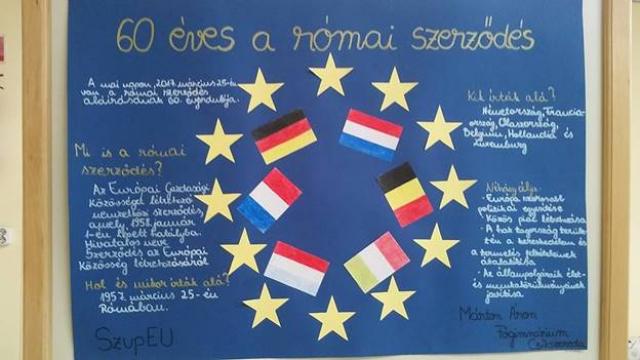 60 éves a római szerződés
A mai napon, 2017. március 25-én
van a római szerződés
aláírásának 60. évfordulója.
Mi is a római
szerződés?
Az Európai Gazdasági
Közösséget létrehozó
nemzetközi szerződés,
amely 1958. január
1-én lépett hatályba.
Hivatalos neve
Szerződés az Európai
Közösség létrehozásáról
Hol és mikor írták alá?
1957. március 25-én
Rómában.
SzupEU
Kik írták alá?
Németország, Francia-
ország, Olaszország,
Belgium, Hollandia és
Luxemburg
Néhány célja:
- Európa népeinek
politikai egysége
- Közös piac létrehozása
- A hat ország terüle-
tén a kereskedelem és
a termelés feltételeinek
átalakítása
- Az állampolgáraik élet-
és munkakörülményeinek
javítása
Márton Áron
Főgimnázium
Csíkszereda